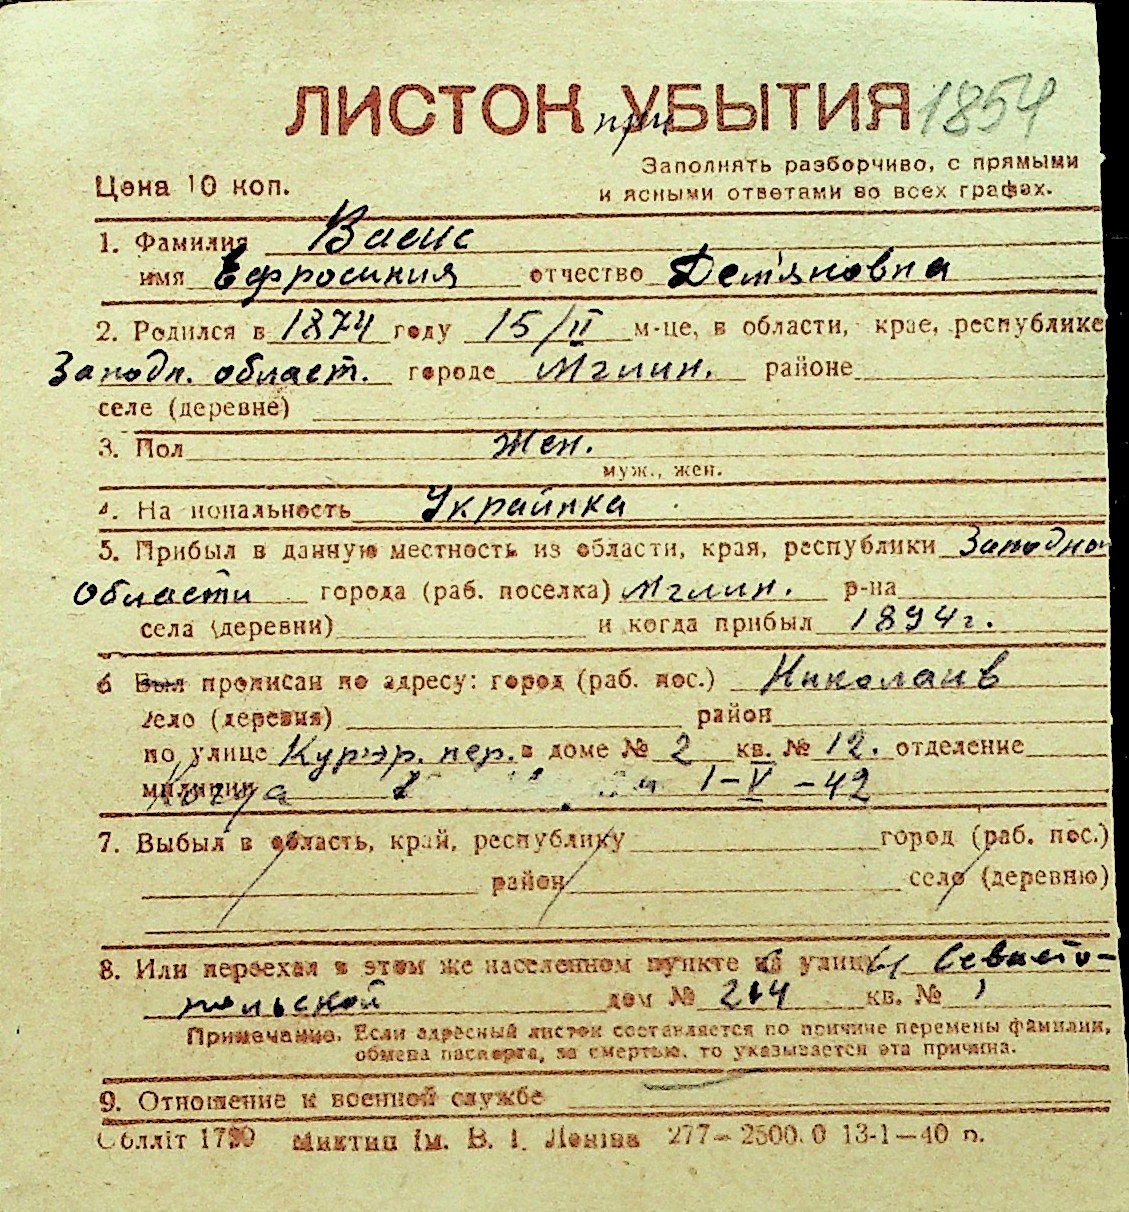 ЛИСТОК при УБЫТИЯ 1854
Заполнять разборчиво, с прямыми
Цена 10 коп. и ясными ответами во всех графах.
1. Фамилия Ваеис
имя Ефросиния отчество Демъяновна
2. Родился в 1874 году 15/II м-це, в области, крае, республике
Западн. област. городе Мглин. районе
селе (деревне)
3. Пол жен.
муж., жен.
4. На иональность Украйнка
5. Прибыл в данную местность из области, края, республики Западной
Области города (раб. поселка) Мглин. р-на
села (деревни) и когда прибыл 1894 г.
6 Был прописан по адресу: город (раб. пос.) Николаив
село (деревня) район
по улице Курьэр. пер. в доме № 2 кв. № 12. отделение
милиции 1-V-42
7. Выбыл в область, край, республику город (раб. пос.)
район село (деревню)
8. Или переехал в этом же населенном пункте улицу Севасто-
польской дом № 214 кв. № 1
Примечание. Если адресный листок составляется по причине перемены фамилии,
обмена паспорта, за смертью, то указывается эта причина.
9. Отношение к военной службе
Облліт 1790 Миктип ім. В. І. Леніна 277—2500.0 13-1—40 п.